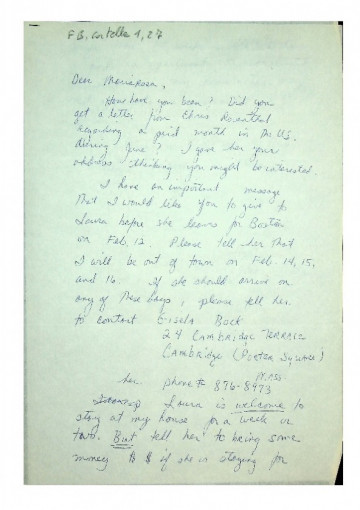 F.B. cartella 1, 27
Dear Mariarosa,
How have you been? Did you
get a letter from Chris Rosenthal
regarding a paid month in the US.
during June? I gave her your
address thinking you might be interested.
I have an important message
that I would like you to give to
Laura before she leaves for Boston
on Feb. 12. Please tell her that
I will be out of town on Feb. 14, 15,
and 16. If she should arrive on
any of these days, please tell her
to contact Gisela Bock
24 Cambridge Terrace
Cambridge (Porter Square)
MASS
her phone # 876-8973
Laura is welcome to
stay at my house for a week or
two. But tell her to bring some
money $ $ if she is staying for